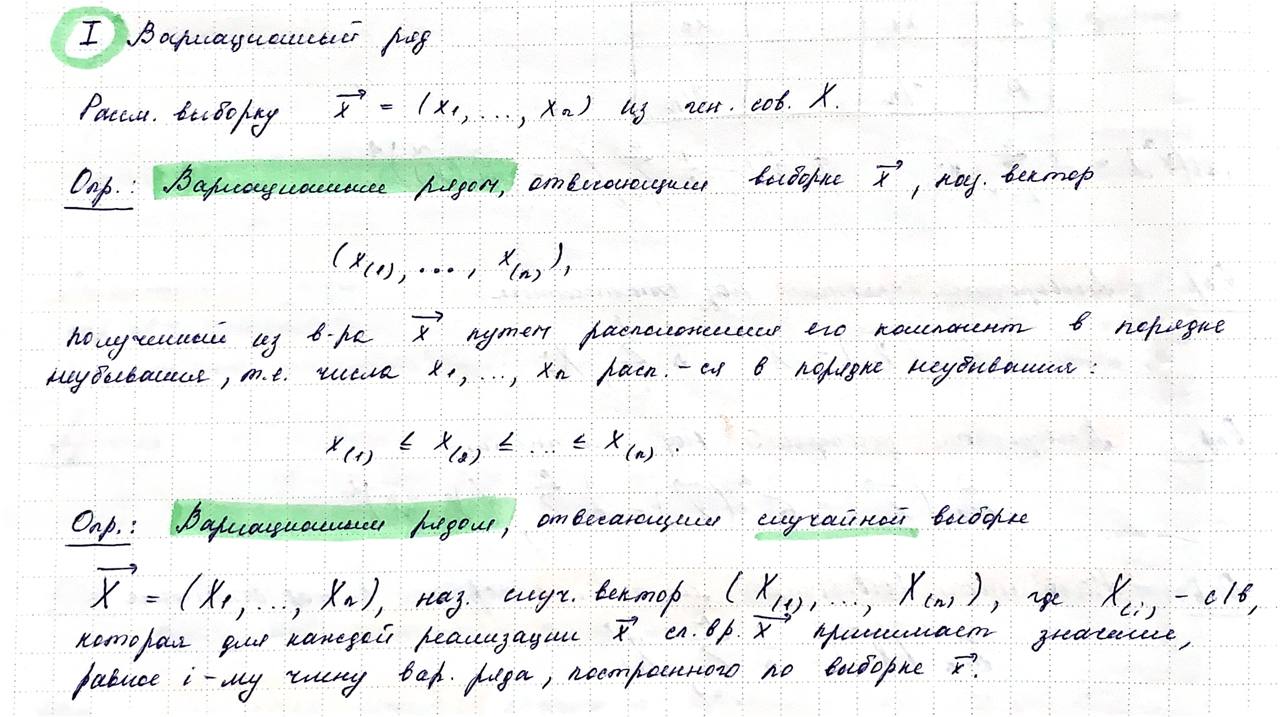 I Вариационный ряд
Рассм. выборку x⃗ = (x₁, ..., xₙ) из ген. сов. X.
Опр.: Вариационным рядом, отвечающим выборке x⃗, наз. вектор
(x₍₁₎, ..., x₍ₙ₎),
полученный из в-ра x⃗ путем расположения его компонент в порядке
неубывания, т.е. числа x₁, ..., xₙ расп.-ся в порядке неубывания:
x₍₁₎ ≤ x₍₂₎ ≤ ... ≤ x₍ₙ₎.
Опр.: Вариационным рядом, отвечающим случайной выборке
X⃗ = (X₁, ..., Xₙ), наз. случ. вектор (X₍₁₎, ..., X₍ₙ₎), где X₍ᵢ₎ - с/в,
которая для каждой реализации x⃗ сл. X⃗ принимает значение,
равное i-му члену вар. ряда, построенного по выборке x⃗.